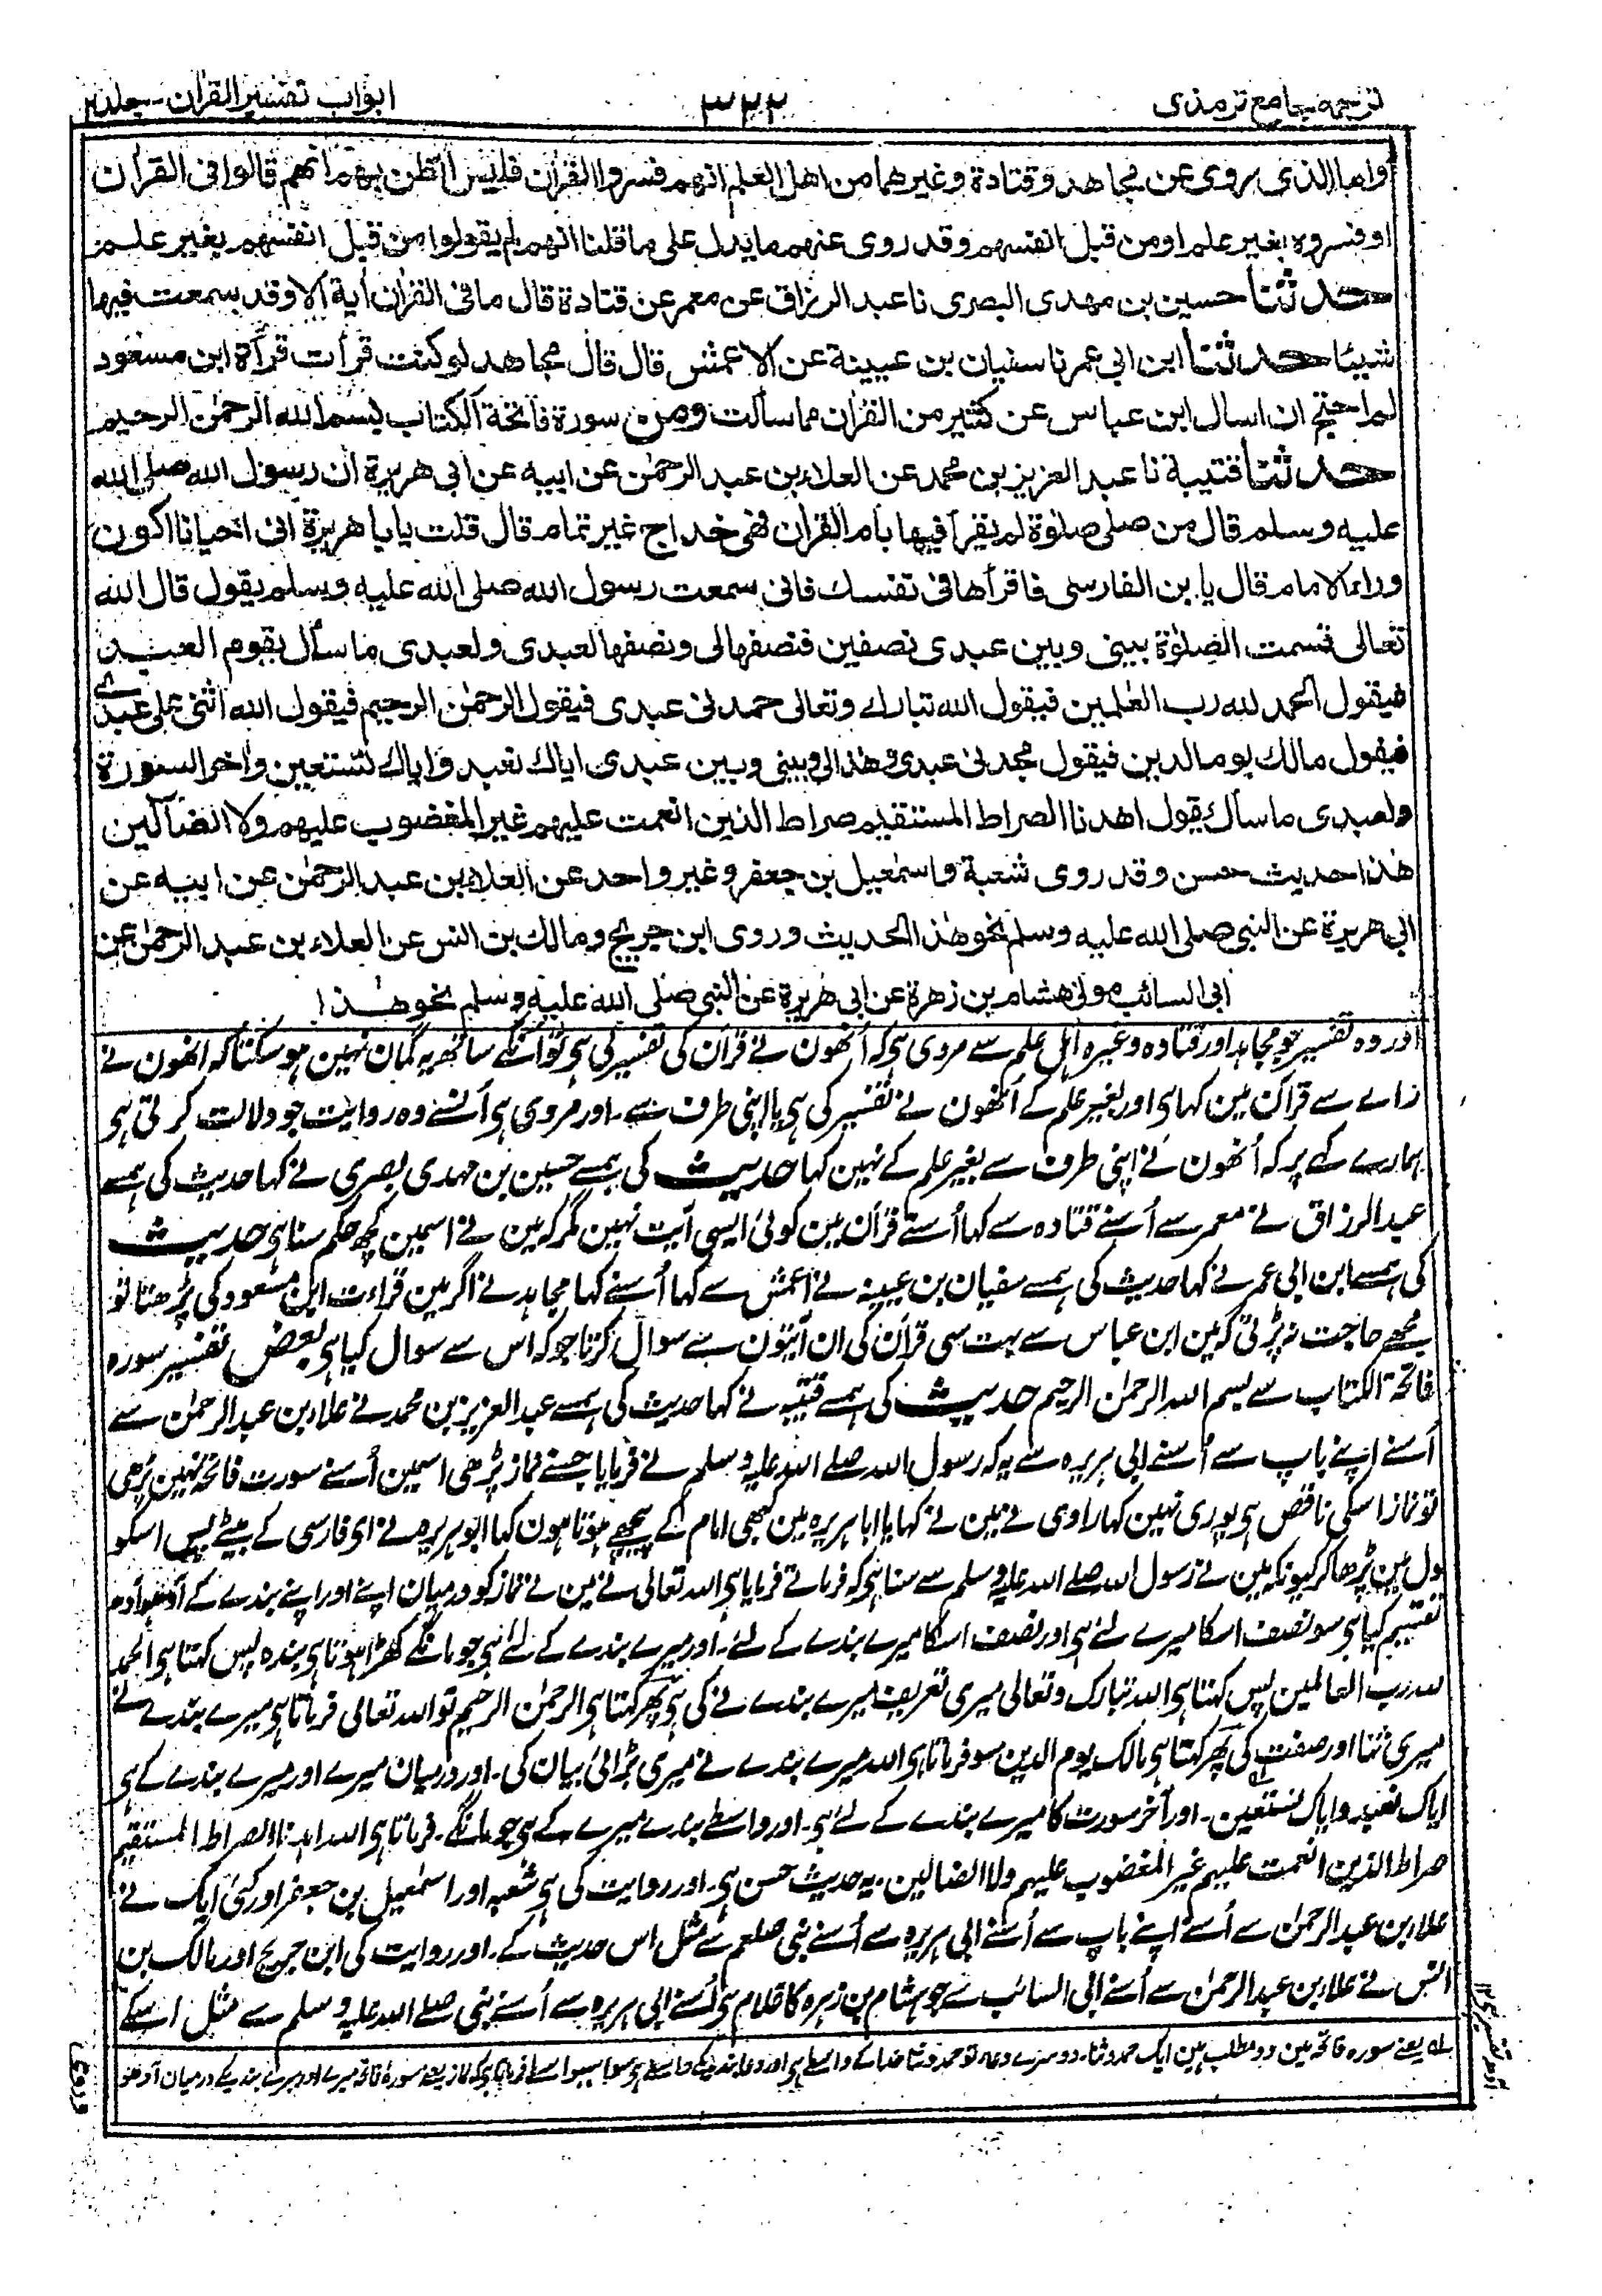 ترجمہ جامع ترمذی
۳۲۲
ابواب تفسیر القرآن - جلد
واما الذی روی عن مجاهد وقتادة وغیرهما من اهل العلم انهم فسروا القرآن فلیس الظن بهم انهم قالوا فی القرآن
او فسروه بغیر علم او من قبل انفسهم وقد روی عنهم ما یدل علی ما قلنا انهم لم یقولوا من قبل انفسهم بغیر علم
حدثنا حسین بن مهدی البصری نا عبد الرزاق عن معمر عن قتادة قال ما فی القرآن اٰیة الا وقد سمعت فیها
شیئا حدثنا ابن ابی عمر نا سفیان بن عیینة عن الاعمش قال قال مجاهد لو کنت قرأت قرأة ابن مسعود
لم احتج ان اسال ابن عباس عن کثیر من القرآن مما سألت ومن سورة فاتحة الکتاب بسم الله الرحمٰن الرحیم
حدثنا قتیبة نا عبد العزیز بن محمد عن العلاء بن عبد الرحمٰن عن ابیه عن ابی هریرة ان رسول الله صلی الله
علیه وسلم قال من صلی صلوٰة لم یقرأ فیها بأم القرآن فهی خداج غیر تمام قال قلت یا با هریرة انی احیانا اکون
وراء الامام قال یا بن الفارسی فاقرأها فی نفسك فانی سمعت رسول الله صلی الله علیه وسلم یقول قال الله
تعالی قسمت الصلوٰة بینی وبین عبدی نصفین فنصفها لی ونصفها لعبدی ولعبدی ما سأل یقوم العبد
فیقول الحمد لله رب العٰلمین فیقول الله تبارك وتعالی حمدنی عبدی فیقول الرحمٰن الرحیم فیقول الله اثنی علی عبدی
فیقول مالك یوم الدین فیقول مجدنی عبدی وهذا لی وبینی وبین عبدی ایاك نعبد وایاك نستعین واٰخر السورة
لعبدی ولعبدی ما سأل یقول اهدنا الصراط المستقیم صراط الذین انعمت علیهم غیر المغضوب علیهم ولا الضآلین
هٰذا حدیث حسن وقد روی شعبة واسمٰعیل بن جعفر وغیر واحد عن العلاء بن عبد الرحمٰن عن ابیه عن
ابی هریرة عن النبی صلی الله علیه وسلم نحو هٰذا الحدیث وروی ابن جریج ومالك بن انس عن العلاء بن عبد الرحمٰن عن
ابی السائب مولی هشام بن زهرة عن ابی هریرة عن النبی صلی الله علیه وسلم نحو هٰذا
اور وہ تفسیر جو مجاہد اور قتادہ وغیرہ اہل علم سے مروی ہی کہ اُنھون نے قرآن کی تفسیر کی ہی تو اُنکے ساتھ یہ گمان نہین ہو سکتا کہ انھون نے
راے سے قرآن مین کہا ہی اور بغیر علم کے اُنھون نے تفسیر کی ہی یا اپنی طرف سے۔ اور مروی ہی اُنسے وہ روایت جو دلالت کرتی ہی
ہمارے کہے پر کہ اُنھون نے اپنی طرف سے بغیر علم کے نہین کہا حدیث کی ہمسے حسین بن مہدی بصری نے کہا حدیث کی ہمسے
عبد الرزاق نے معمر سے اُسنے قتادہ سے کہا اُسنے قرآن مین کوئی ایسی آیت نہین مگر کہ مین نے اسمین کچھ حکم سنا ہی حدیث
کی ہمسے ابن ابی عمر نے کہا حدیث کی ہمسے سفیان بن عیینہ نے اعمش سے کہا اُسنے کہا مجاہد نے اگر مین قراءت ابن مسعود کی پڑھتا تو
مجھے حاجت نہ پڑتی کہ مین ابن عباس سے بہت سی قرآن کی ان آیتون سے سوال کرتا جو کہ اس سے سوال کیا ہی بعض تفسیر سورہ
فاتحۃ الکتاب سے بسم اللہ الرحمٰن الرحیم حدیث کی ہمسے قتیبہ نے کہا حدیث کی ہمسے عبد العزیز بن محمد نے علاء بن عبد الرحمٰن سے
اُسنے اپنے باپ سے اُسنے ابی ہریرہ سے یہ کہ رسول اللہ صلے اللہ علیہ وسلم نے فرمایا جسنے نماز پڑھی اسمین اُسنے سورت فاتحہ نہین پڑھی
تو نماز اسکی ناقص ہی پوری نہین کہا راوی نے مین نے کہا یا ابا ہریرہ مین کبھی امام کے پیچھے ہوتا ہون کہا ابو ہریرہ نے ای فارسی کے بیٹے پس اسکو
دل مین پڑھا کر کیونکہ مین نے رسول اللہ صلے اللہ علیہ وسلم سے سنا ہی کہ فرماتے فرمایا ہی اللہ تعالی نے مین نے نماز کو درمیان اپنے اور اپنے بندے کے آدھوں آدھ
تقسیم کیا ہی سو نصف اسکا میرے لئے ہی اور نصف اسکا میرے بندے کے لئے۔ اور میرے بندے کے لئے ہی جو مانگے کھڑا ہوتا ہی بندہ پس کہتا ہی الحمد
للہ رب العالمین پس کہتا ہی اللہ تبارک وتعالی میری تعریف میرے بندے نے کی ہی پھر کہتا ہی الرحمٰن الرحیم تو اللہ تعالی فرماتا ہی میرے بندے نے
میری ثنا اور صفت کی پھر کہتا ہی مالک یوم الدین سو فرماتا ہی اللہ میرے بندے نے میری بڑائی بیان کی۔ اور درمیان میرے اور میرے بندے کے ہی
ایاک نعبد وایاک نستعین۔ اور آخر سورت کا میرے بندے کے لئے ہی۔ اور واسطے بندے میرے کے ہی جو مانگے۔ فرماتا ہی اللہ اہدنا الصراط المستقیم
صراط الذین انعمت علیہم غیر المغضوب علیہم ولا الضالین۔ یہ حدیث حسن ہی۔ اور روایت کی ہی شعبہ اور اسمٰعیل بن جعفر اور کئی ایک نے
علاء بن عبد الرحمٰن سے اُسنے اپنے باپ سے اُسنے ابی ہریرہ سے اُسنے نبی صلعم سے مثل اس حدیث کے۔ اور روایت کی ابن جریج اور مالک بن
انس نے علاء بن عبد الرحمٰن سے اُسنے ابی السائب سے جو ہشام بن زہرہ کا غلام ہی اُسنے ابی ہریرہ سے اُسنے نبی صلے اللہ علیہ وسلم سے مثل اسکے
لہ یعنے سورہ فاتحہ مین دو مطلب ہین ایک حمد وثنا۔ دوسرے دعا۔ تو حمد وثنا خدا کے واسطے ہی اور دعا بندے کے واسطے ہی سو اسیواسطے فرمایا ہی کہ نماز یعنے سورۂ فاتحہ میرے اور میرے بندے کے درمیان آدھوں